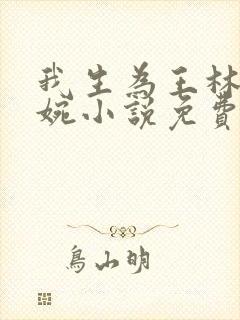 我生為王林
婉小說免費
鳥山明